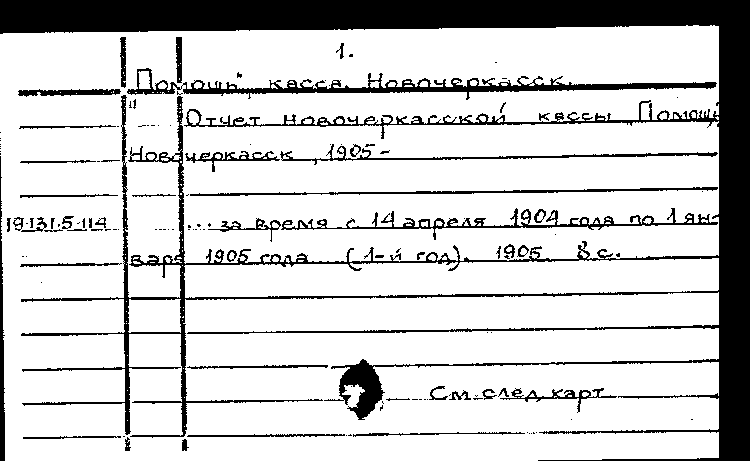 1.
"Помощь", касса. Новочеркасск.
Отчет новочеркасской кассы „Помощь"
Новочеркасск, 1905-
19.131.5.114 ... за время с 14 апреля 1904 года по 1 ян-
варя 1905 года (1-й год). 1905. 8 с.
См. след. карт